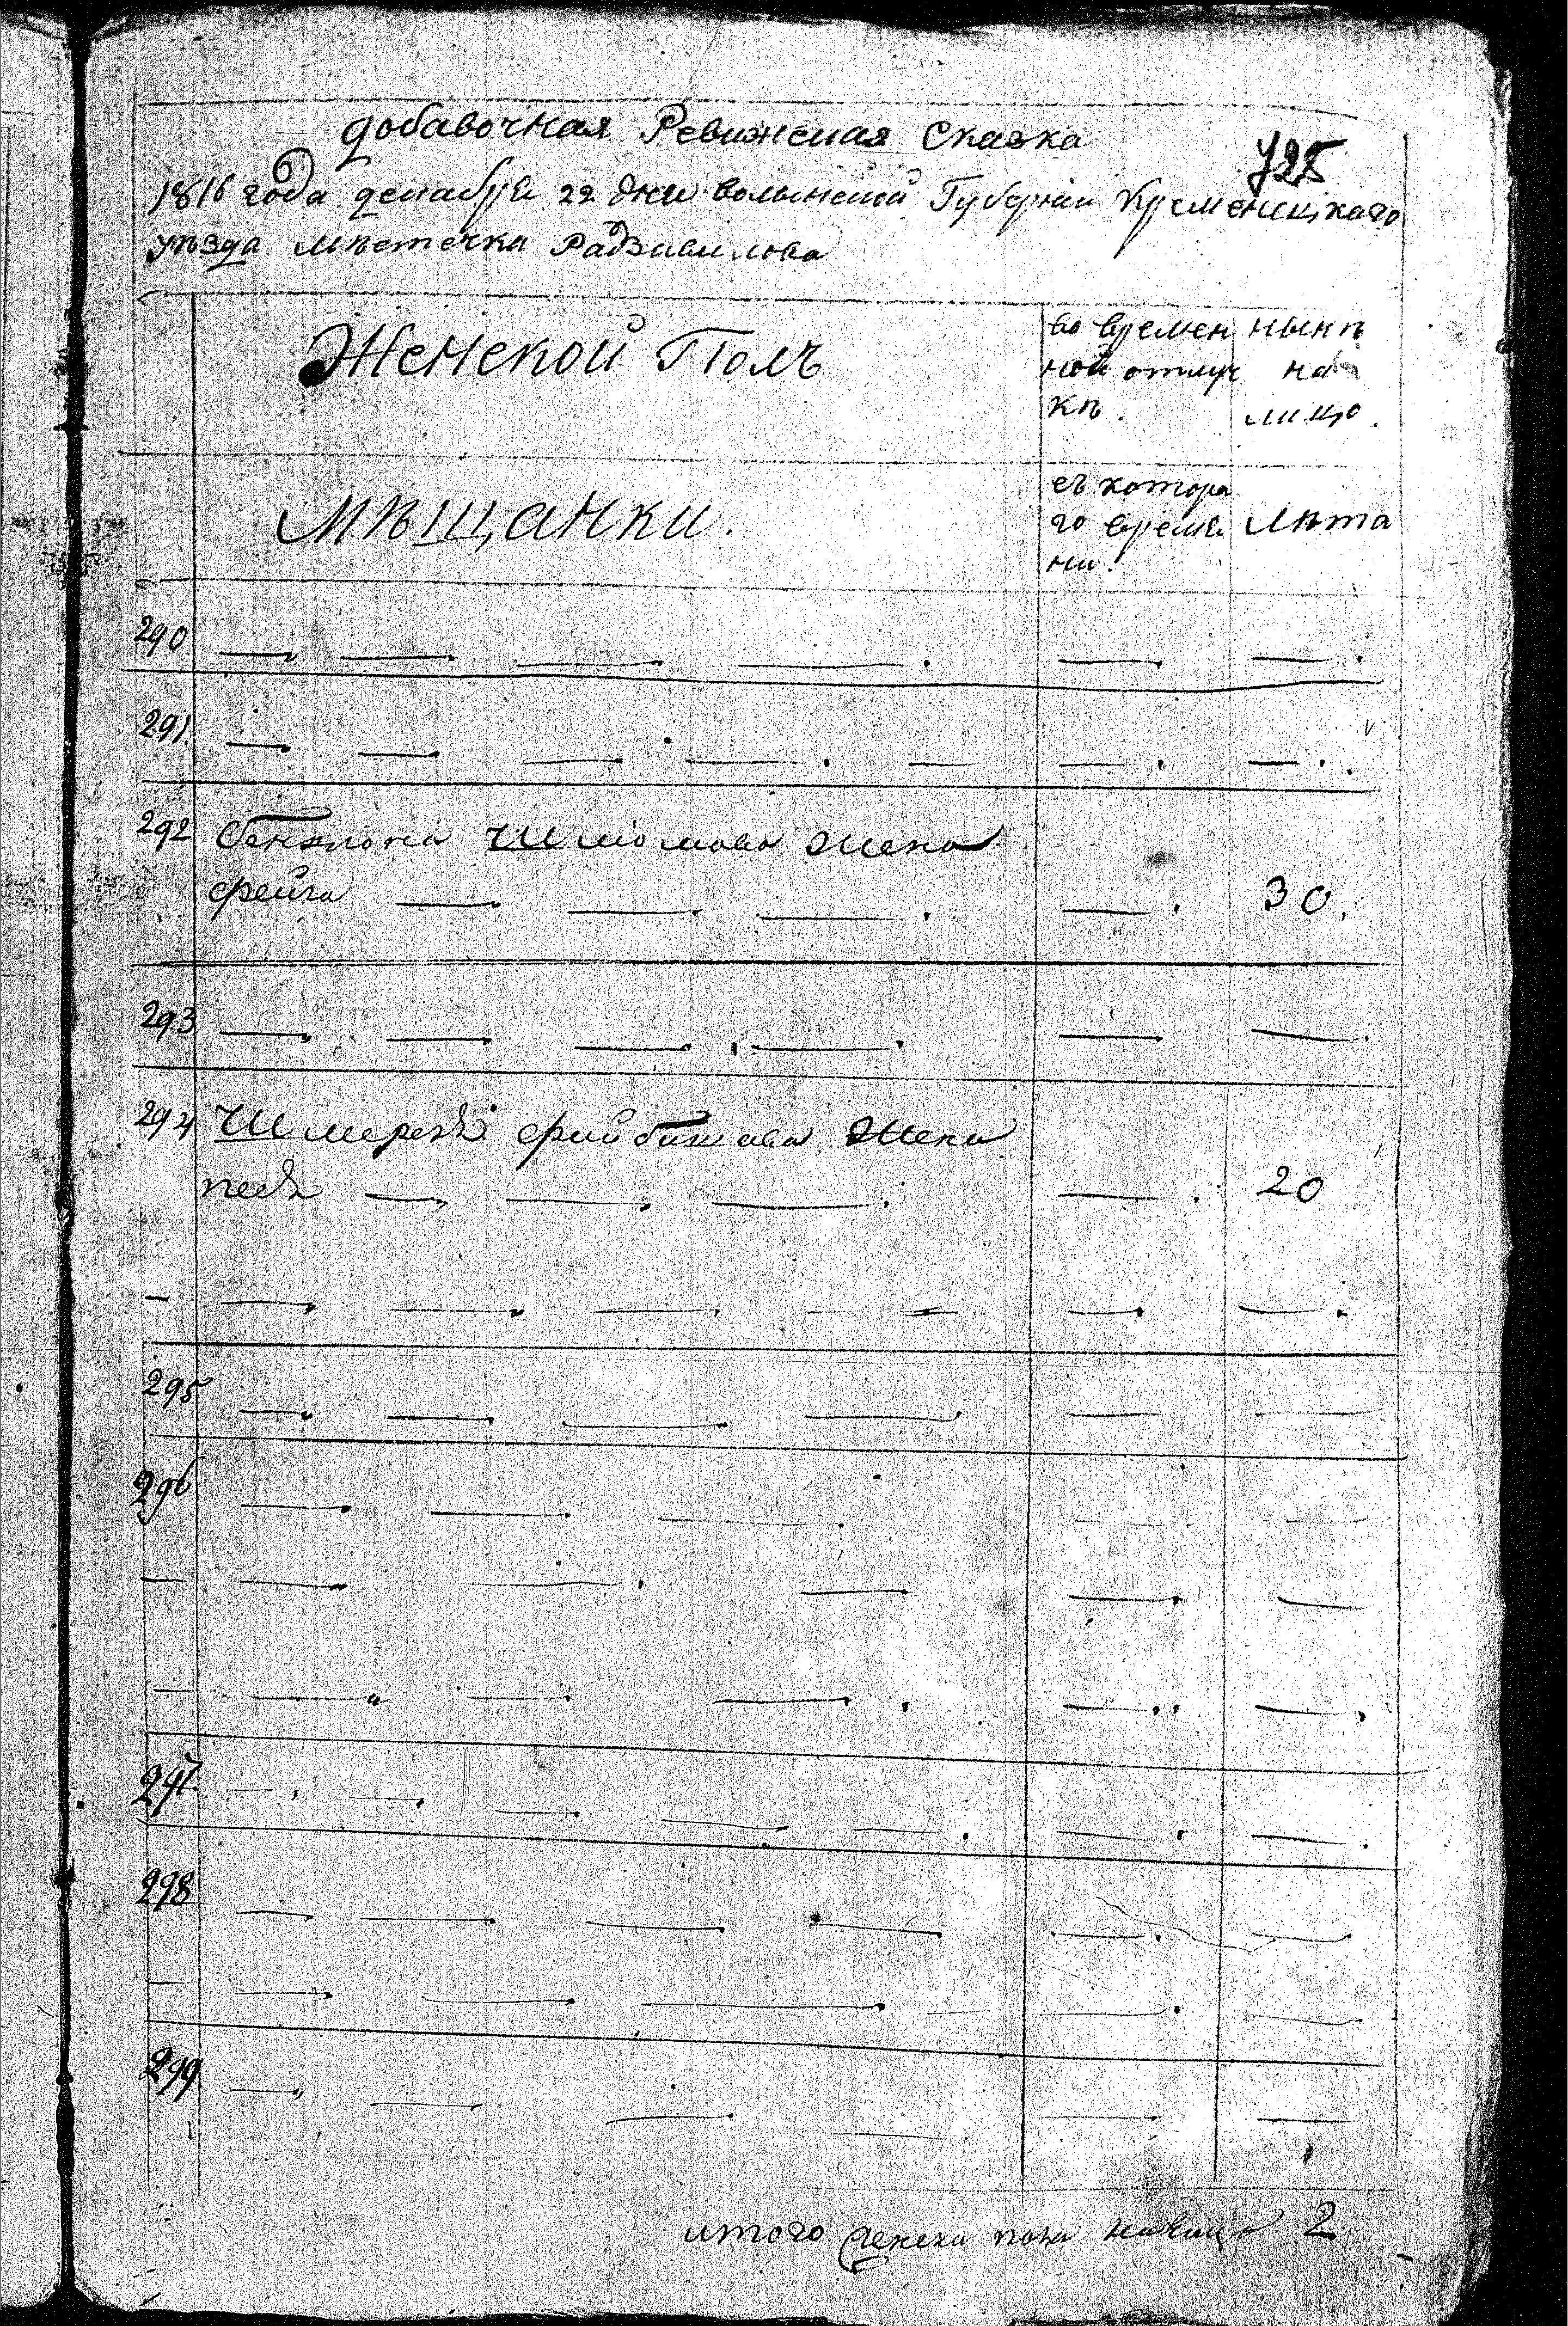 добавочная Ревижская Сказка
725
1816 года декабря 22 дня волынской Губернии Кременецкаго
уѣзда мѣстечка Радзивилова
Женской Полъ
во времен
ной отлуч
кѣ.
нынѣ
на
лицо.
Мѣщанки.
съ котора
го време
ни.
Лѣта
290
291.
292 Шлiомова жена
фейга 30.
293
294 Шмереля жена
песя 20
295
296
297.
298
299
итого женска пола налицо 2